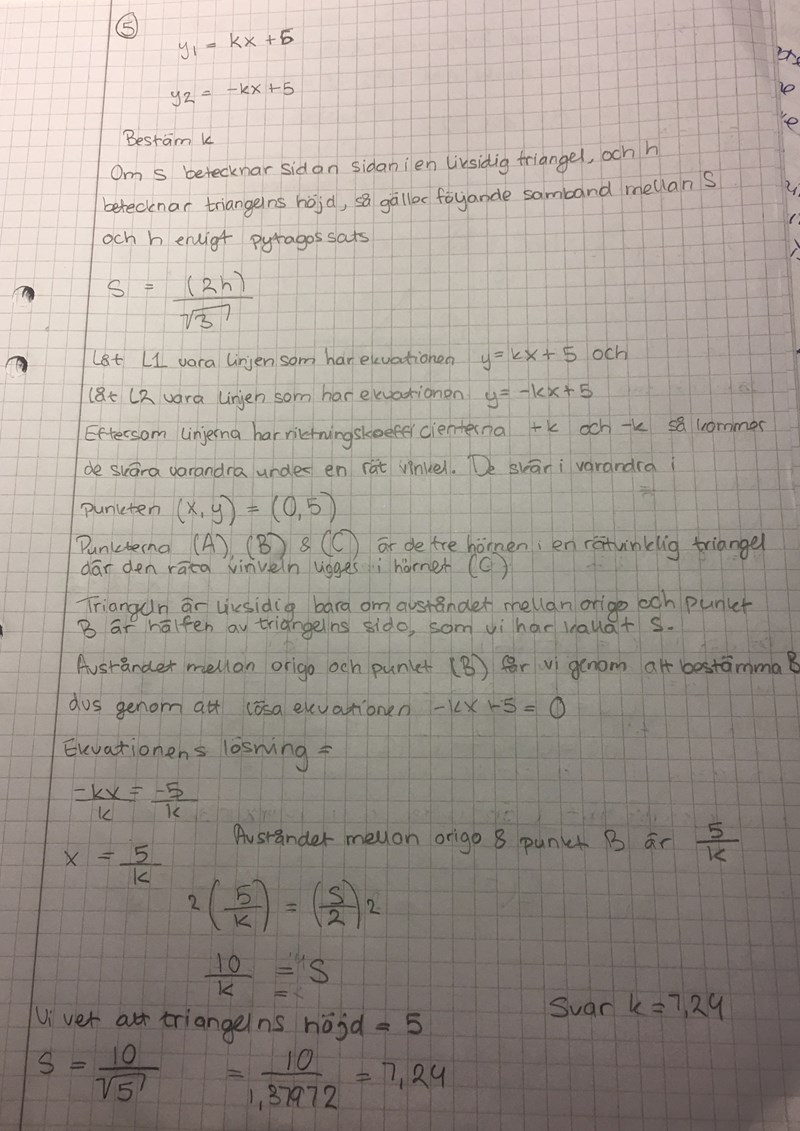 5
y1 = kx + 5
y2 = -kx+5
Bestäm k
Om s betecknar sidan sidan i en liksidig triangel, och h
betecknar triangelns höjd, så gäller föyande samband mellan S
och h enligt pytagos sats
S = (2h) / √3
Låt L1 vara linjen som har ekvationen y=kx+5 och
låt L2 vara linjen som har ekvationen y=-kx+5
Eftersom linjerna har riktningskoefficienterna +k och -k så kommer
de skära varandra under en rät vinkel. De skär i varandra i
punkten (x,y) = (0,5)
Punkterna (A), (B) & (C) är de tre hörnen i en rätvinklig triangel
där den räta vinveln ligges i hörnet (C)
Triangeln är liksidig bara om avståndet mellan origo och punkt
B är hälfen av triangelns sida, som vi har kallat S.
Avståndet mellan origo och punkt (B) får vi genom att bestämma B
dvs genom att lösa ekvationen -kx+5=0
Ekvationens lösning =
-kx/k = -5/k
x = 5/k Avståndet mellan origo & punkt B är 5/k
2(5/k) = (S/2)2
10/k = S
Vi vet att triangelns höjd = 5
Svar k=7,24
S = 10/√5 = 10/1,37972 = 7,24